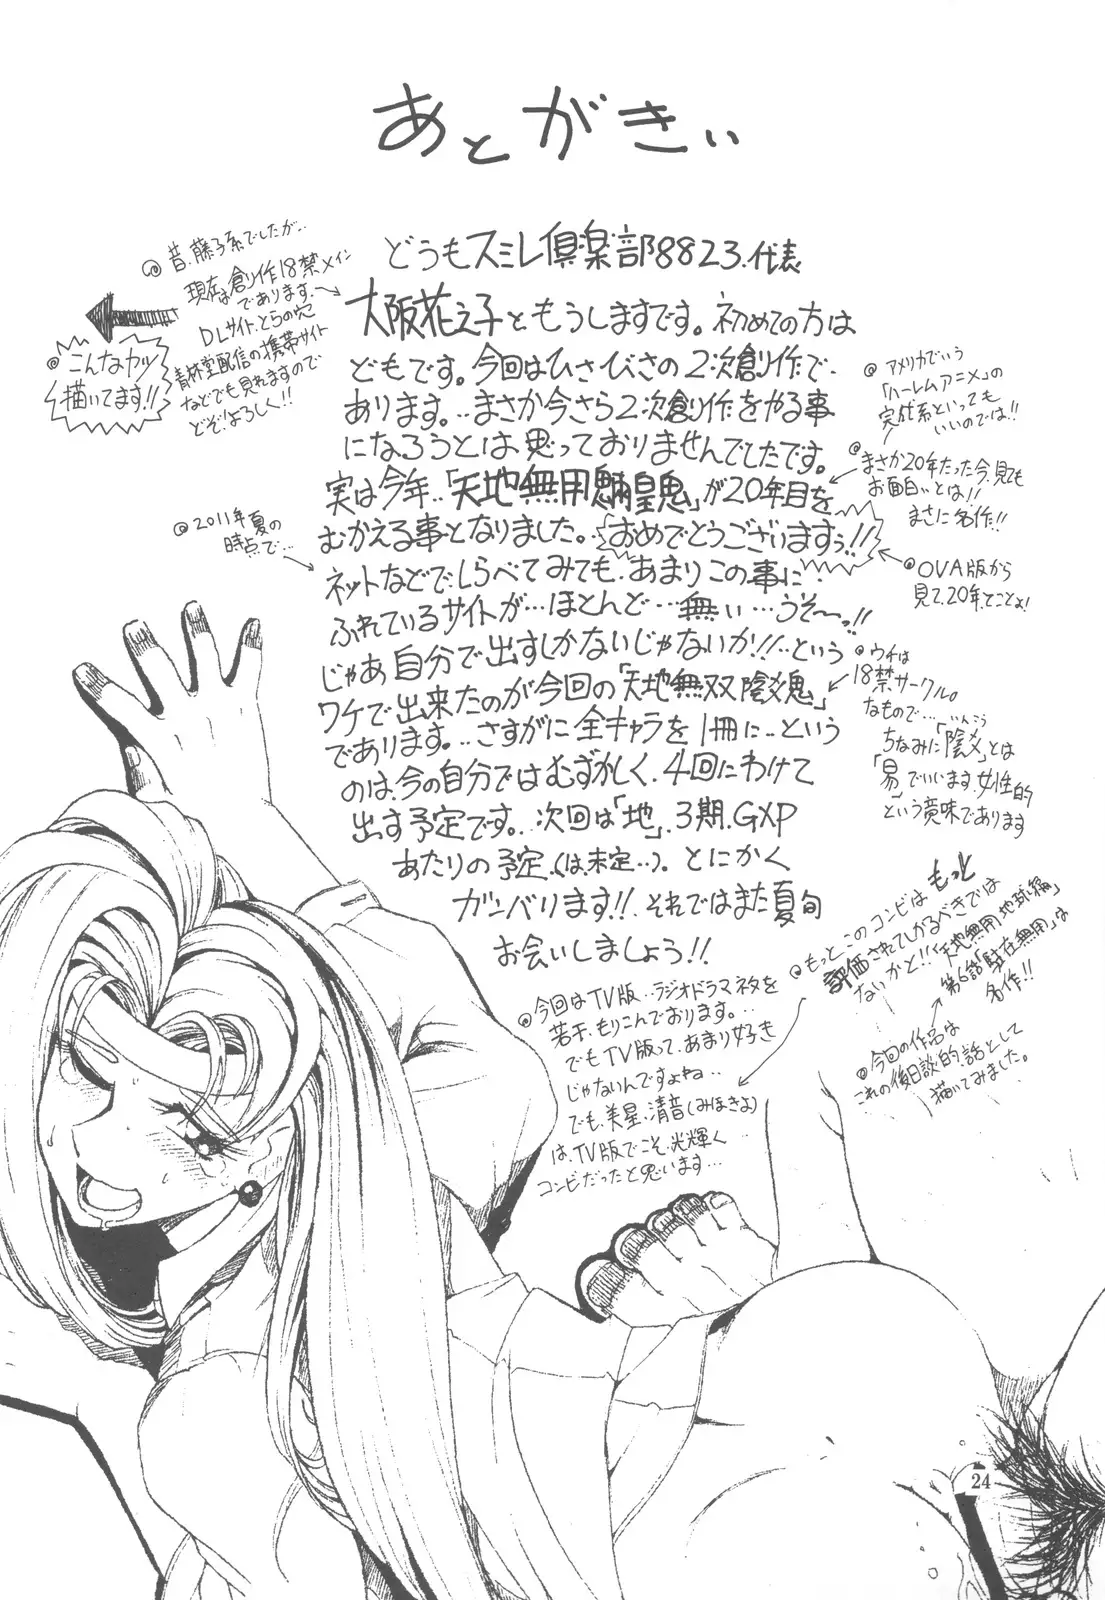 あとがきぃ
どうもスミレ倶楽部8823.代表
大阪花え子ともうしますです。初めての方は
どもです。今回はひさびさの2次創作で
あります。..まさか今さら2次創作をやる事
になろうとは思っておりませんでしたです。
実は今年..「天地無用魎皇鬼」が20年目を
むかえる事となりました。「おめでとうございますぅ!!
ネットなどでしらべてみても.あまりこの事に
ふれているサイトが…ほとんど…無い…うそ〜っ!!
じゃあ自分で出すしかないじゃないか!!..という
ワケで出来たのが今回の「天地無双陰爻鬼」
であります。..さすがに全キャラを1冊に..という
のは.今の自分ではむずかしく.4回にわけて
出す予定です。.次回は「地」.3期.GXP
あたりの予定.(は.未定..)。とにかく
ガンバリます!!.それではまた夏旬
お会いしましょう!!
昔.藤子系でしたが..
現在は創作18禁メイン
であります.
DLサイト.とらの穴
青林堂配信の携帯サイト
などでも見れますので
どぞ!よろしく!!
こんなカンジ
描いてます!!
2011年夏の
時点で…
アメリカでいう
「ハーレムアニメ」の
完成系といっても
いいのでは!!
まさか20年たった今.見ても
お面白いとは!!
まさに名作!!
OVA版から
見て.20年.とことよ!
ウチは
18禁サークル。
なもので…
いんこう
ちなみに「陰爻」とは
「易」でいいます.女性的
という意味であります
もっとこのコンビはもっと
評価されてしかるべきでは
ないかと!!「天地無用地球編」
第6話「駐在無用」は
名作!!
今回の作品は
これの後日談的.話として
描いてみました。
今回はTV版..ラジオドラマネタを
若干.もりこんでおります。…
でもTV版って.あまり好きも
じゃないんですよね…
でも.美星.清音(みほきよ)
は.TV版でこそ.光輝く
コンビだったと思います…
24